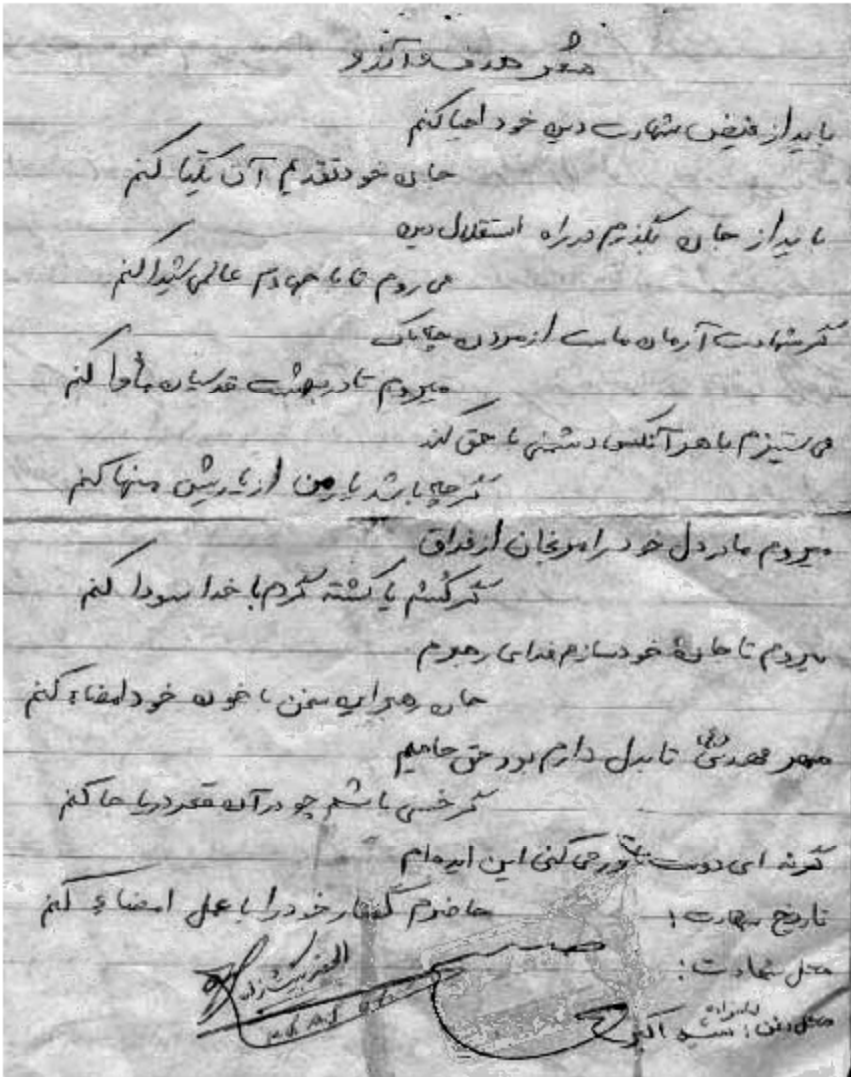 شعر هدف و آرزو
باید از فیض شهادت دین خود احیا کنم
جان خود تقدیم آن یکتا کنم
باید از جان بگذرم در راه استقلال دین
می روم تا با جهادم عالمی شیدا کنم
گر شهادت آرمان ماست از مردن چه باک
میروم تا در بهشت قدسیان مأوا کنم
می ستیزم با هر آنکس دشمنی با حق کند
گر چه باشد یار من از یاریش منها کنم
میروم مادر دل خود را مرنجان از فراق
گر کُشم یا کشته گردم با خدا سودا کنم
میروم تا جان خود سازم فدای رهبرم
جان رهبر این سخن با خون خود امضاء کنم
مهر مهدی تا بدل دارم بود حق حامیم
گر خسی باشم چو در آن قعر دریا جا کنم
گر نه ای دوست باور می کنی این ایده ام
حاضرم گفتار خود را با عمل امضاء کنم
تاریخ شهادت:
محل شهادت:
محل دفن: امامزاده اکبر